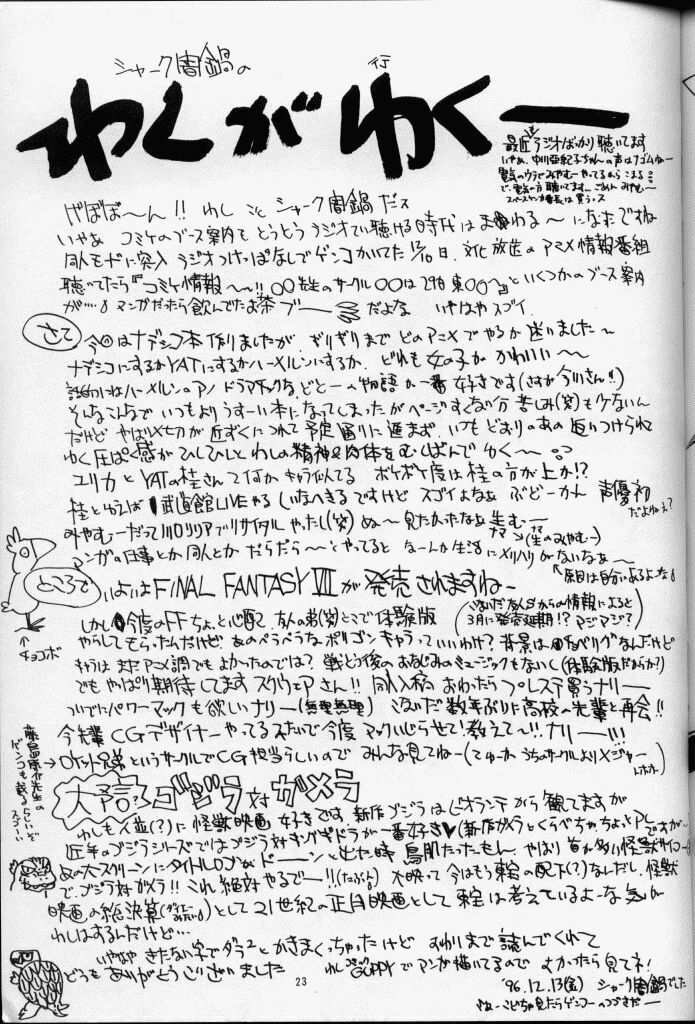 シャーク闇鍋の
行
わくがゆくー
最近ラジオばっかり聴いてます
いやぁ、中川亜紀子ちゃんの声は
電気のウラでみやむーやってるからこまる
で、電気の方聴いてます…ごめんみやむー
やぼぼ〜ん!! わしことシャーク闇鍋だス
いやあ コミケのブース案内もとうとうラジオで聴ける時代はまわる〜になったですね
同人モードに突入 ラジオつけっぱなしでゲンコかいてた12/10日、文化放送のアニメ情報番組
聴いてたら『コミケ情報〜!! 〇〇先生のサークル〇〇は29日東〇〇〜』といくつかのブース案内
が…。マンガだったら飲んでたお茶ブー だよな いやはやスゴイ
さて
今回はナデシコ本作りましたが、ギリギリまでどのアニメでやるか迷いました〜
ナデシコにするかYATにするかハーメルンにするか、どれも女の子がかわいい〜〜
話的にはハーメルンのアノ ドラマチックなどとーの物語が一番好きです(さすが今川さん!!)
そんなこんなでいつもよりうすーい本になってしまったがページすくない分苦しみ(笑)も少ないん
だけど やはり〆切が近ずくにつれて予定通りに進まず、いつもどおりのあの追いつけられ
ゆく圧ぱく感がひしひしとわしの精神&肉体をむしばんでゆく〜
ユリカとYATの桂さんて何かキャラ似てる ボケボケ度は桂の方が上か!?
桂といえば 武道館LIVEやる しいなへきるですけど スゴイよなぁ ぶどーかん 声優初
だよねぇ?
みやむーだって川口リリアでリサイタルやったし(笑) ぬ〜見たかったなぁ生むー
ナマ→(生のみやむー)
マンガの仕事とか同人とか だらだら〜とやってると なーんか生活にメリハリがないなぁ〜
↑原因は自分にあるよーな。
ところで
いよいよFINAL FANTASY VIIが発売されますねー
↑
チョコボ
しかし今度のFFちょっと心配 友人の弟(笑)とこで体験版
(つぎだ友人Sからの情報によると
3月に発売延期!? マジマジ?)
やらしてもらったんだけど、あのペラペラなポリゴンキャラっていいわけ? 背景はなんだけど
キャラはまだアニメ調でもよかったのでは? 戦とう後のおなじみのミュージックもないし(体験版だからか?)
でもやっぱり期待してますスクウェアさん!! 同人入稿おわったらプレステ買うナリー
ついでにパワーマックも欲しいナリー(無理無理) つぎだ数年ぶりに高校の先輩と再会!!
今先輩CGデザイナーやってるそなので今度マックいじらせて!教えて〜!!ナリー!!!
ロケット兄弟というサークルでCG担当らしいのでみんな見てねー(てゅーかうちのサークルよりメジャー
藤島康介先生の
ゲンコも載るらしいぞ
スゴーい
大予言? ゴジラ対ガメラ
わしも人並(?)に怪獣映画好きです 新作ゴジラはビオランテから観てますが
近年のゴジラシリーズではゴジラ対キングギドラが一番好き♥(新作ガメラとくらべちゃちょっとアレですが…
あの大スクリーンにタイトルロゴがドーーンと出た時 鳥肌たったもん、やはり 首が多い怪獣サイコー!
で、ゴジラ対ガメラ!! これ絶対やるでー!!(たぶん。) 大映って今はもう東宝の配下(?)なんだし、怪獣
映画の総決算として21世紀の正月映画として東宝は考えているよーな気が
わしはするんだけど…
いやはやきたない字でダラ2とかきまくっちゃったけど おわりまで読んでくれて
どうもありがとうございました わしGUPPYでマンガ描いてるので よかったら見てネ!
23
'96.12.13(金) シャーク闇鍋でした